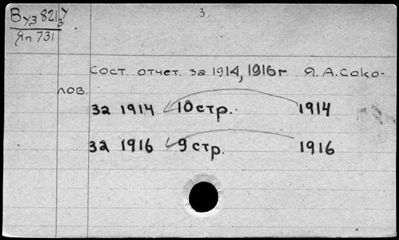 Вуз 821/3 У
Яп 731
3
Сост. отчет. за 1914, 1916 г Я. А. Соко-
лов.
за 1914 10 стр. 1914
за 1916 9 стр. 1916